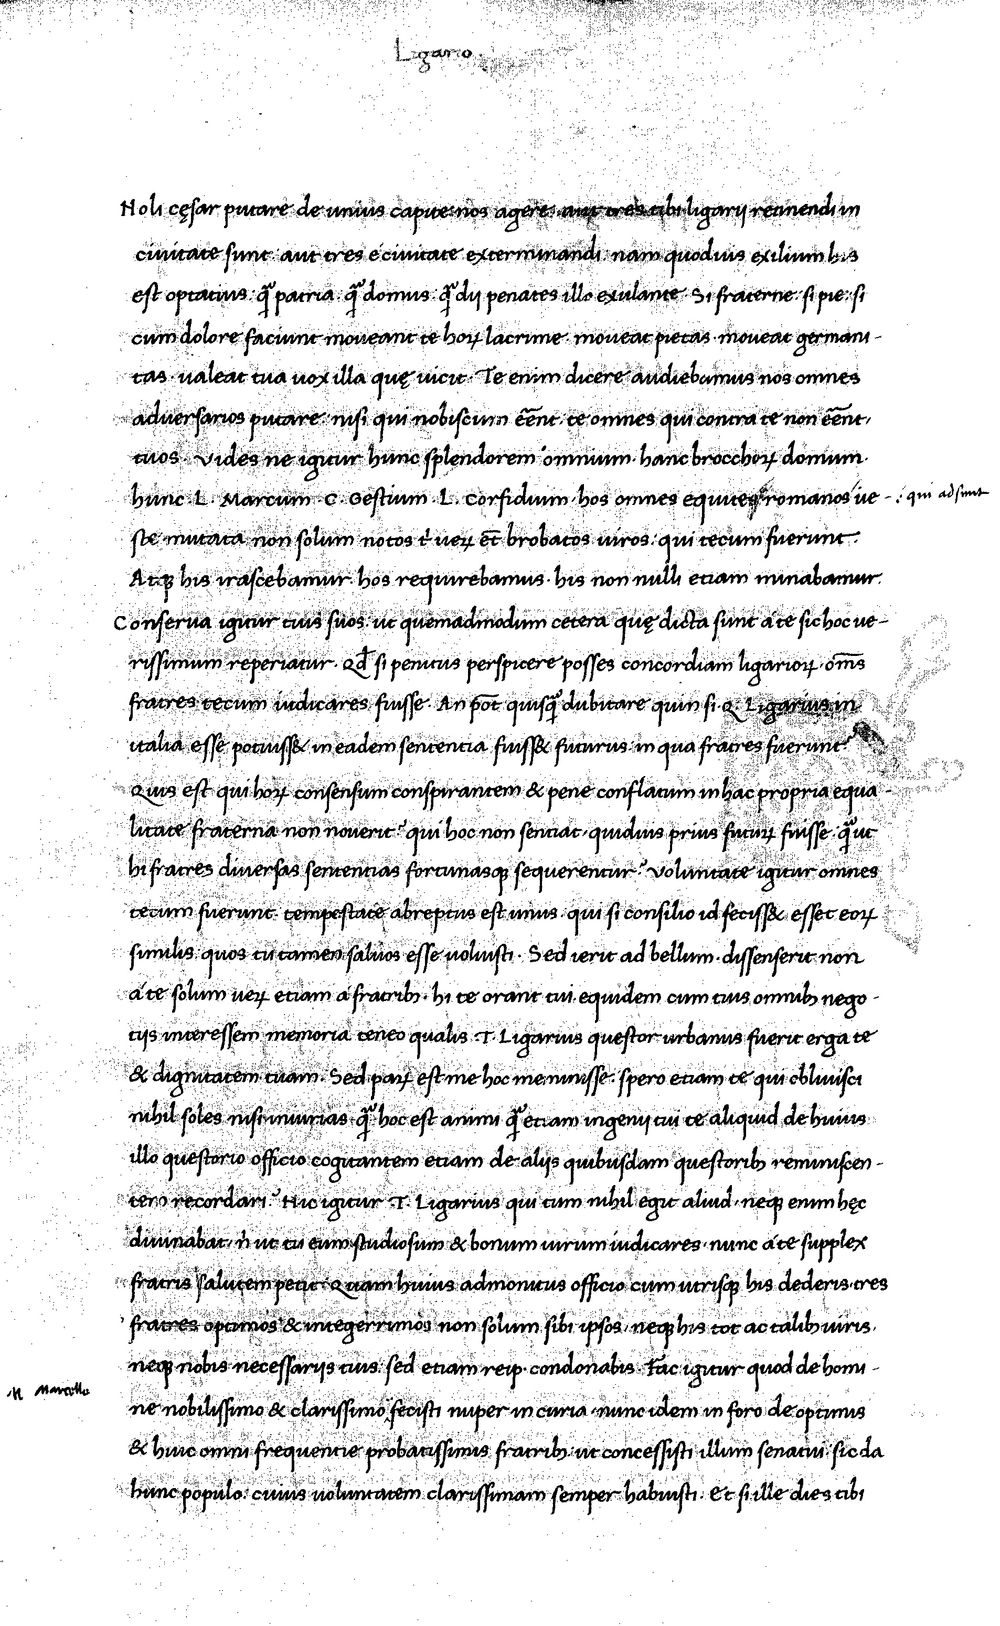 Ligario
Noli cęsar putare de unius capite nos agere. aut tres tibi ligarij retinendi in
ciuitate sunt. aut tres e ciuitate exterminandi. nam quoduis exilium his
est optatius. q̃ patria. q̃ domus. q̃ dij penates illo exulante. Si fraterne. si pie. si
cum dolore faciunt moueant te hoꝝ lacrime. moueat pietas. moueat germani-
tas. ualeat tua uox illa quę uicit. Te enim dicere audiebamus nos omnes
aduersarios putare. nisi qui nobiscum eēnt. te omnes qui contra te non eēnt,
tuos. Vides ne igitur hunc splendorem omnium. hanc brocchoꝝ domum.
hunc L. Marcium C. Gestium L. Corfidium. hos omnes equites romanos ue-
ste mutata non solum notos t uerꝝ et̄ brobatos uiros. qui tecum fuerunt.
Atqꝫ his irascebamur. hos requirebamus. his non nulli etiam minabamur.
Conserua igitur tuis suos. ut quemadmodum cetera quę dicta sunt a te sic hoc ue-
rissimum reperiatur. Qd̄ si penitus perspicere posses concordiam ligarioꝝ. om̄s
fratres tecum iudicares fuisse. An pōt quisq̃ dubitare quin si Q. Ligarius in
italia esse potuiss& in eadem sententia fuiss& futurus in qua fratres fuerunt?
Quis est qui hoꝝ consensum conspirantem & pene conflatum in hac propria equa-
litate fraterna non nouerit? qui hoc non sentiat. quiduis prius futuꝝ fuisse. q̃ ut
hi fratres diuersas sententias fortunasqꝫ sequerentur? Voluntate igitur omnes
tecum fuerunt. tempestate abreptus est unus. qui si consilio id feciss& esset eoꝝ
similis. quos tu tamen saluos esse uoluisti. Sed ierit ad bellum. dissenserit non
a te solum ueꝝ etiam a fratribꝫ. hi te orant tui. equidem cum tuis omnibꝫ nego-
tijs interessem memoria teneo qualis .T. Ligarius questor urbanus fuerit erga te
& dignitatem tuam. Sed paꝝ est me hoc meminisse. spero etiam te qui obliuisci
nihil soles nisi iniurias. q̃ hoc est animi q̃ etiam ingenij tui te aliquid de huius
illo questorio officio cogitantem etiam de alijs quibusdam questoribꝫ reminiscen-
tem recordari? Hic igitur .T. Ligarius qui tum nihil egit aliud. neqꝫ enim hęc
diuinabat. n̄ ut tu eum studiosum & bonum uirum iudicares. nunc a te supplex
fratris salutem petit. Quam huius admonitus officio cum utrisqꝫ his dederis. tres
fratres optimos & integerrimos non solum sibi ipsos. neqꝫ his tot ac talibꝫ uiris.
neqꝫ nobis necessarijs tuis. sed etiam reip. condonabis. Fac igitur quod de homi-
ne nobilissimo & clarissimo fecisti nuper in curia. nunc idem in foro de optimis
& huic omni frequentie probatissimis fratribꝫ. ut concessisti illum senatui. sic da
hunc populo. cuius uoluntatem clarissimam semper habuisti. Et si ille dies tibi
qui adsunt
M Marcello